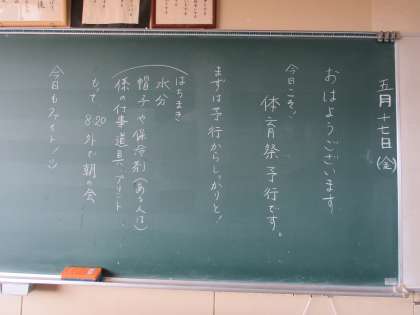 五月十七日(金)
おはようございます
今日こそ!
体育祭予行です。
まずは予行からしっかりと!
はちまき
水分
帽子や保冷剤(ある人は)
係の仕事道具、プリント……
もって 8:20 外で朝の会
今日もファイト!